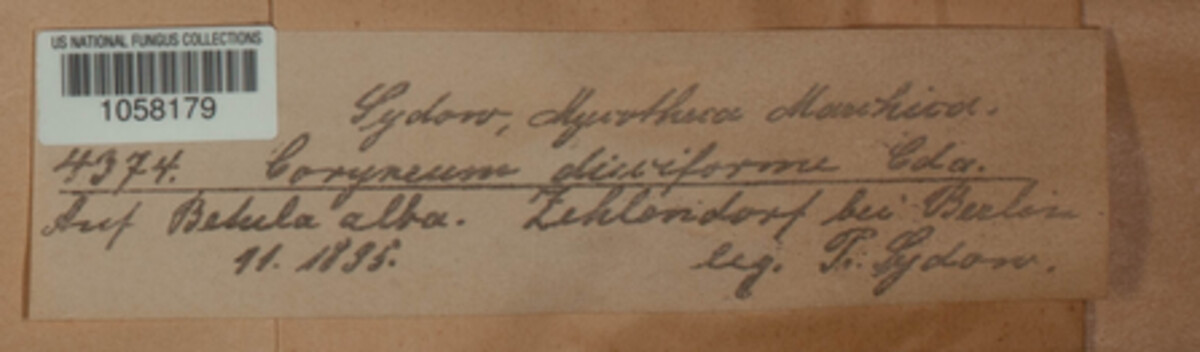 US NATIONAL FUNGUS COLLECTIONS
1058179
Sydow, Mycotheca Marchica.
4374. Coryneum disciforme Cda.
Auf Betula alba. Zehlendorf bei Berlin.
11. 1895. leg. P. Sydow.